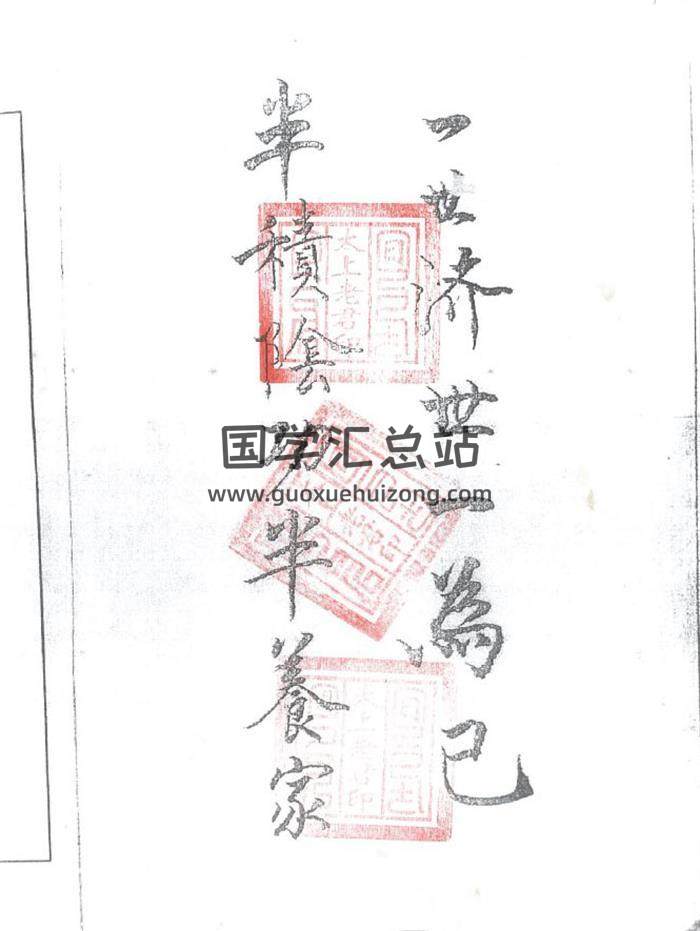 一世济世一為己
半積陰功半養家
太上老君印
国学汇总站
www.guoxuehuizong.com